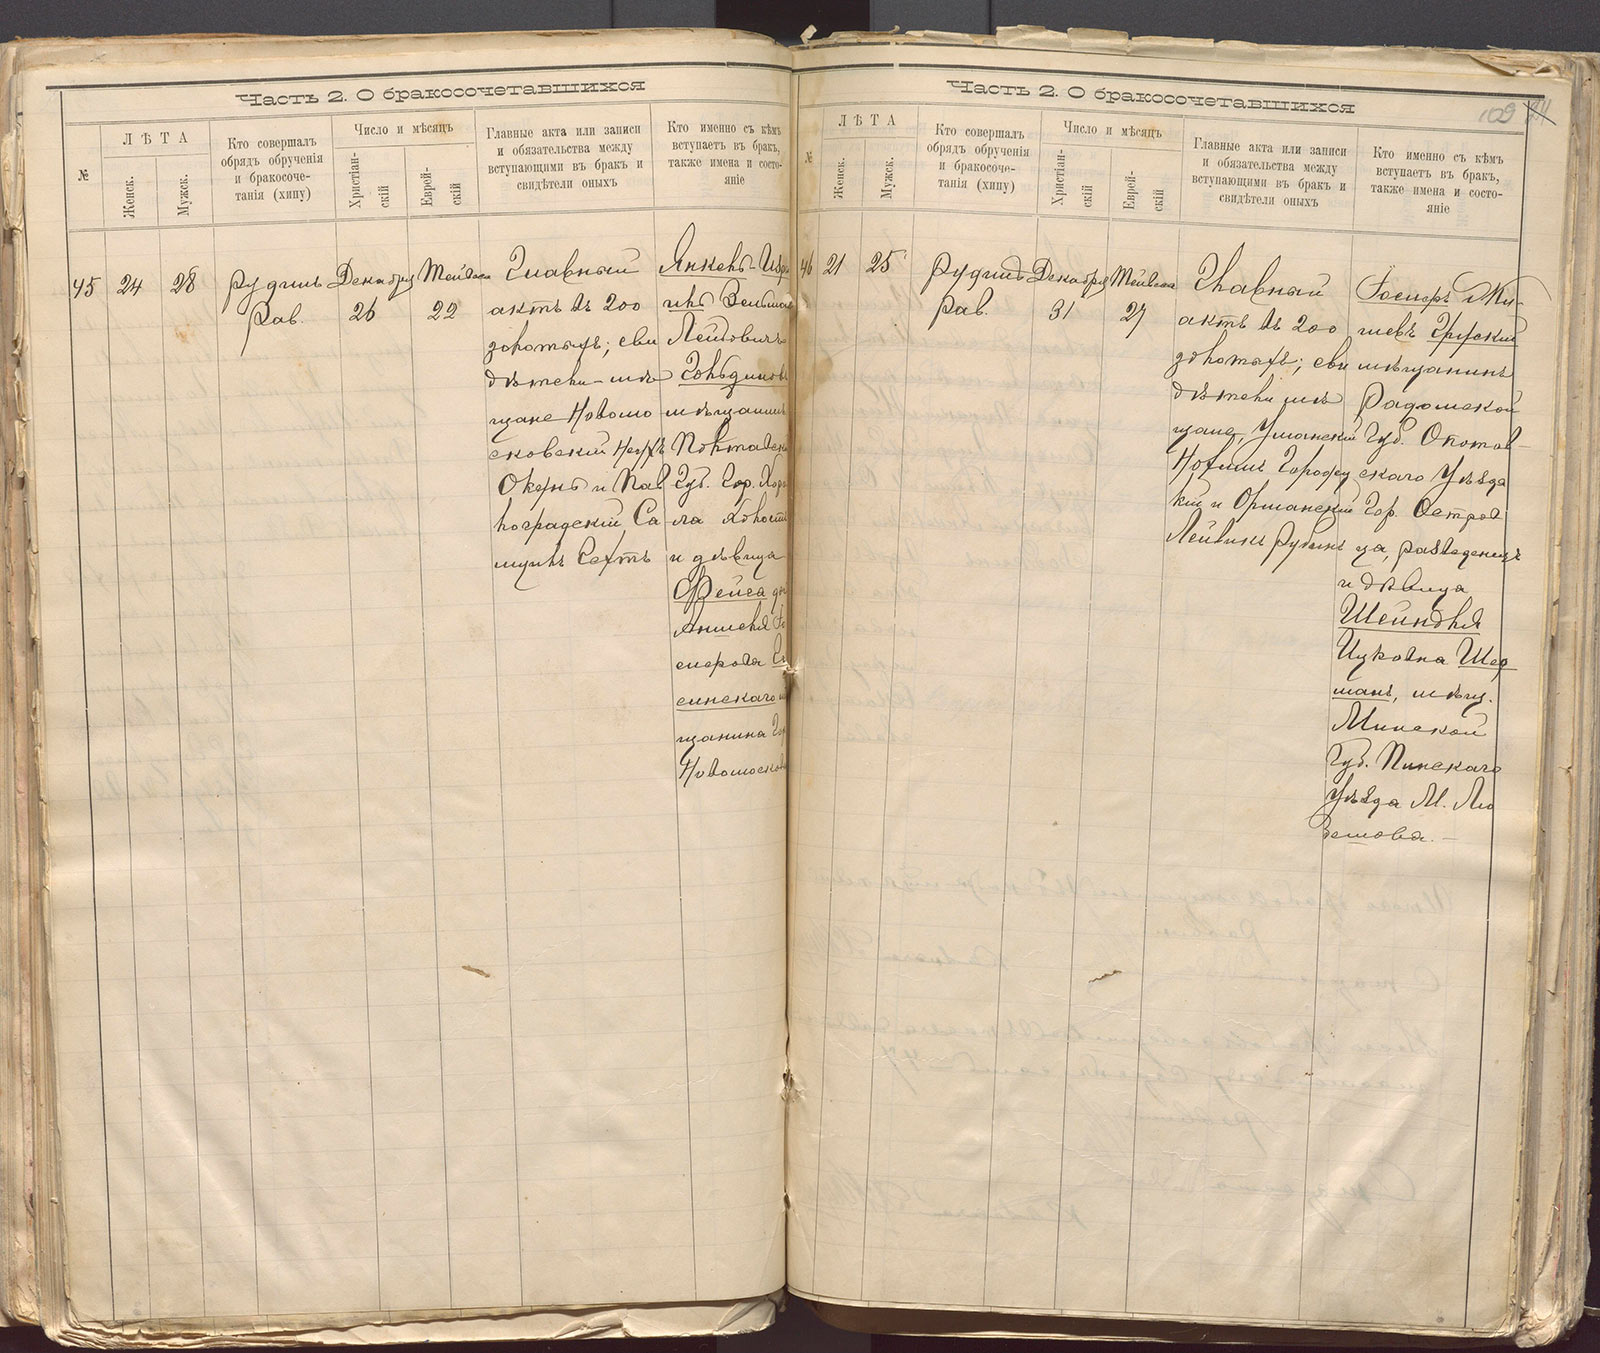 Часть 2. О бракосочетавшихся
№
ЛѢТА
Женск.
Мужск.
Кто совершалъ
обрядъ обрученія
и бракосоче-
танія (хипу)
Число и мѣсяцъ
Христіан-
скій
Еврей-
скій
Главные акта или записи
и обязательства между
вступающими въ бракъ и
свидѣтели оныхъ
Кто именно съ кѣмъ
вступаетъ въ бракъ,
также имена и состо-
яніе
45
24
28
Рудинъ
Рав.
Декабря
26
22
Главный
актъ въ 200
золотыхъ; сви
дѣтели - мѣ
щане Новомо
сковскій
Окунь и Пав
лоградскій Са
муилъ
Янкевъ-
Лейбовичъ
мѣщанинъ
Полтавск
Губ. Гор.
и дѣвица
Фейга
щанина
Новомоско
Часть 2. О бракосочетавшихся
109
№
ЛѢТА
Женск.
Мужск.
Кто совершалъ
обрядъ обрученія
и бракосоче-
танія (хипу)
Число и мѣсяцъ
Христіан-
скій
Еврей-
скій
Главные акта или записи
и обязательства между
вступающими въ бракъ и
свидѣтели оныхъ
Кто именно съ кѣмъ
вступаетъ въ бракъ,
также имена и состо-
яніе
46
21
25
Рудинъ
Рав.
Декабря
31
27
Главный
актъ въ 200
золотыхъ; сви
дѣтели мѣ
щане, Уманскій
Нохимъ Городец
кій и Оршанскій
Лейвикъ Рубинъ
Іосифъ
мѣщанинъ
Радомской
Губ. Опатов-
скаго Уѣзда
Гор. Остров
ца, разведенецъ
и дѣвица
Шейндля
Ицковна Шер
манъ, мѣщ.
Минской
Губ. Пинскаго
Уѣзда М. Лю
бешова.